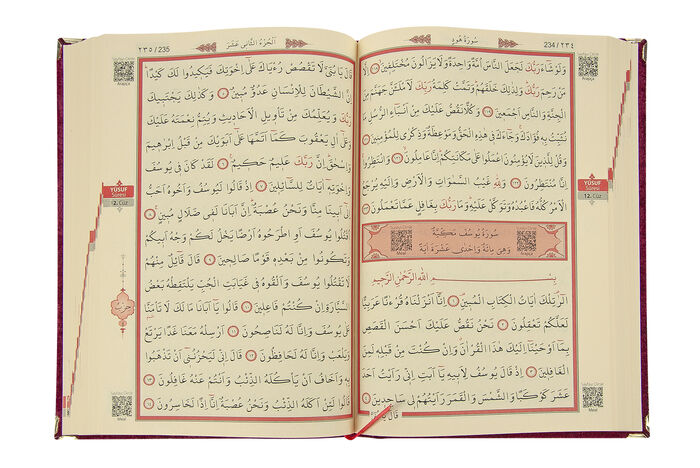 234 / ٢٣٤
سُورَةُ هُودٍ
وَلَوْ شَاءَ رَبُّكَ لَجَعَلَ النَّاسَ اُمَّةً وَاحِدَةً وَلَا يَزَالُونَ مُخْتَلِفِينَ
مَنْ رَحِمَ رَبُّكَ وَلِذٰلِكَ خَلَقَهُمْ وَتَمَّتْ كَلِمَةُ رَبِّكَ لَاَمْلَـَٔنَّ جَهَنَّمَ مِنَ
الْجِنَّةِ وَالنَّاسِ اَجْمَعِينَ ١١٩ وَكُلًّا نَقُصُّ عَلَيْكَ مِنْ اَنْبَاءِ الرُّسُلِ مَا
نُثَبِّتُ بِهِ فُؤَادَكَ وَجَاءَكَ فِي هٰذِهِ الْحَقُّ وَمَوْعِظَةٌ وَذِكْرٰى لِلْمُؤْمِنِينَ
وَقُلْ لِلَّذِينَ لَا يُؤْمِنُونَ اعْمَلُوا عَلٰى مَكَانَتِكُمْ اِنَّا عَامِلُونَ ١٢١ وَانْتَظِرُوا
اِنَّا مُنْتَظِرُونَ ١٢٢ وَلِلّٰهِ غَيْبُ السَّمٰوَاتِ وَالْاَرْضِ وَاِلَيْهِ يُرْجَعُ
الْاَمْرُ كُلُّهُ فَاعْبُدْهُ وَتَوَكَّلْ عَلَيْهِ وَمَا رَبُّكَ بِغَافِلٍ عَمَّا تَعْمَلُونَ
سُورَةُ يُوسُفَ مَكِّيَّةٌ
وَهِيَ مِائَةٌ وَاِحْدٰى عَشْرَةَ اٰيَةً
Meal
Arapça
بِسْمِ اللّٰهِ الرَّحْمٰنِ الرَّحِيمِ
الٓرٰ تِلْكَ اٰيَاتُ الْكِتَابِ الْمُبِينِ ١ اِنَّا اَنْزَلْنَاهُ قُرْءٰنًا عَرَبِيًّا
لَعَلَّكُمْ تَعْقِلُونَ ٢ نَحْنُ نَقُصُّ عَلَيْكَ اَحْسَنَ الْقَصَصِ
بِمَا اَوْحَيْنَا اِلَيْكَ هٰذَا الْقُرْاٰنَ وَاِنْ كُنْتَ مِنْ قَبْلِهِ لَمِنَ
الْغَافِلِينَ ٣ اِذْ قَالَ يُوسُفُ لِاَبِيهِ يَا اَبَتِ اِنِّي رَاَيْتُ اَحَدَ
عَشَرَ كَوْكَبًا وَالشَّمْسَ وَالْقَمَرَ رَاَيْتُهُمْ لِي سَاجِدِينَ ٤
قَالَ يَا بُنَيَّ
Arapça
YUSUF
Sûresi
12. Cüz
Meal
235 / ٢٣٥
اَلْجُزْءُ الثَّانِي عَشَرَ
قَالَ يَا بُنَيَّ لَا تَقْصُصْ رُءْيَاكَ عَلٰى اِخْوَتِكَ فَيَكِيدُوا لَكَ كَيْدًا
اِنَّ الشَّيْطَانَ لِلْاِنْسَانِ عَدُوٌّ مُبِينٌ ٥ وَكَذٰلِكَ يَجْتَبِيكَ
رَبُّكَ وَيُعَلِّمُكَ مِنْ تَأْوِيلِ الْاَحَادِيثِ وَيُتِمُّ نِعْمَتَهُ عَلَيْكَ
وَعَلٰى اٰلِ يَعْقُوبَ كَمَا اَتَمَّهَا عَلٰى اَبَوَيْكَ مِنْ قَبْلُ اِبْرٰهِيمَ
وَاِسْحٰقَ اِنَّ رَبَّكَ عَلِيمٌ حَكِيمٌ ٦ لَقَدْ كَانَ فِي يُوسُفَ
وَاِخْوَتِهِ اٰيَاتٌ لِلسَّائِلِينَ ٧ اِذْ قَالُوا لَيُوسُفُ وَاَخُوهُ اَحَبُّ
اِلٰى اَبِينَا مِنَّا وَنَحْنُ عُصْبَةٌ اِنَّ اَبَانَا لَفِي ضَلَالٍ مُبِينٍ ٨
اُقْتُلُوا يُوسُفَ اَوِ اطْرَحُوهُ اَرْضًا يَخْلُ لَكُمْ وَجْهُ اَبِيكُمْ
وَتَكُونُوا مِنْ بَعْدِهِ قَوْمًا صَالِحِينَ ٩ قَالَ قَائِلٌ مِنْهُمْ
لَا تَقْتُلُوا يُوسُفَ وَاَلْقُوهُ فِي غَيَابَتِ الْجُبِّ يَلْتَقِطْهُ بَعْضُ
السَّيَّارَةِ اِنْ كُنْتُمْ فَاعِلِينَ ١٠ قَالُوا يَا اَبَانَا مَا لَكَ لَا تَأْمَنَّا
عَلٰى يُوسُفَ وَاِنَّا لَهُ لَنَاصِحُونَ ١١ اَرْسِلْهُ مَعَنَا غَدًا يَرْتَعْ
وَيَلْعَبْ وَاِنَّا لَهُ لَحَافِظُونَ ١٢ قَالَ اِنِّي لَيَحْزُنُنِي اَنْ تَذْهَبُوا
بِهِ وَاَخَافُ اَنْ يَأْكُلَهُ الذِّئْبُ وَاَنْتُمْ عَنْهُ غَافِلُونَ ١٣
قَالُوا لَئِنْ اَكَلَهُ الذِّئْبُ وَنَحْنُ عُصْبَةٌ اِنَّا اِذًا لَخَاسِرُونَ ١٤
Arapça
YUSUF
Sûresi
12. Cüz
حزب
Meal